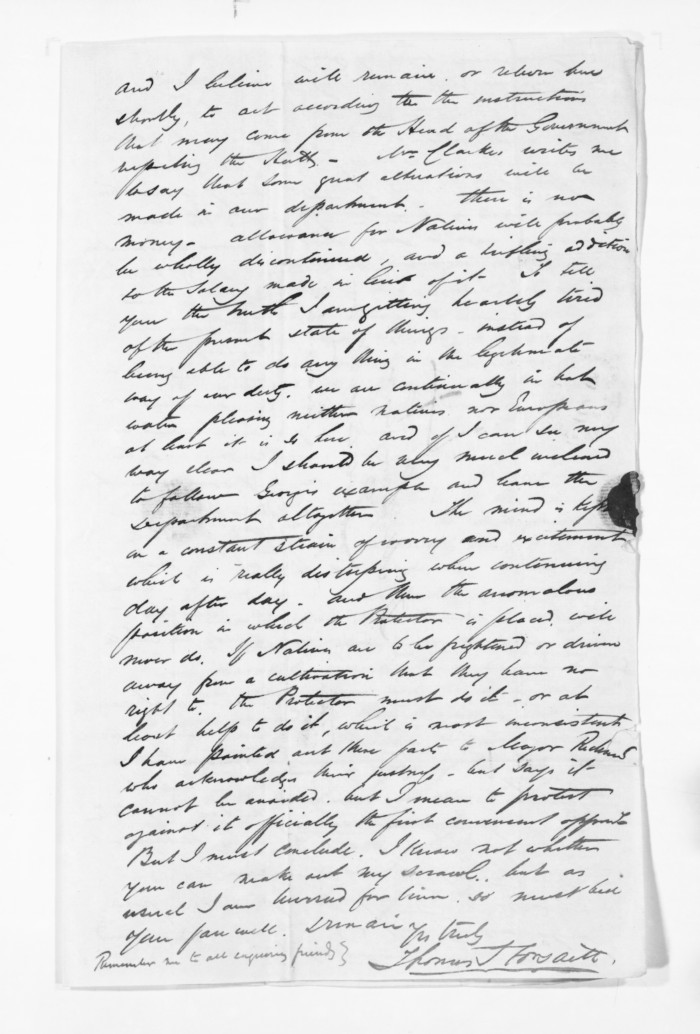 and I believe will remain or return here
shortly, to act according the the instructions
that may come from the Head of the Government
respecting the Hutt. - Mr. Clarke writes me
to say that some great alterations will be
made in our department. - There is no
money - allowance for Natives will probably
be wholly discontinued, and a trifling addition
to the Salary made in lieu of it To tell
you the truth I am getting heartily tired
of the present state of things - instead of
being able to do any thing in the legitimate
way of our duty. we are continually in hot
water pleasing neither natives nor Europeans
at least it is so here. and if I can see my
way clear I should be very much inclined
to follow George's example and leave the
Department altogether. The mind is kept
in a constant strain of worry and excitement
which is really distressing when continuing
day after day. - and then the anomalous
position in which the Protector is placed will
never do. If Natives are to be frightened or driven
away from a cultivation that they have no
right to. the Protector must do it - or at
least help to do it, which is most inconsistent.
I have pointed out these facts to Major Richmond
who acknowledges their justness - but says it
cannot be avoided. but I mean to protest
against it officially the first convenient
But I must conclude. I know not whether
you can make out my scrawl. but as
usual I am hurried for time. so must bid
you farewell. I remain Yrs truly
Remember me to all enquiring friends}
Thomas S Forsaith.